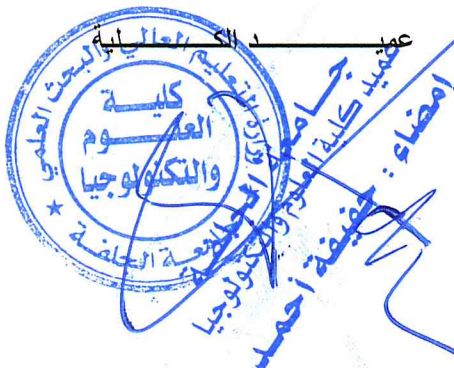 عميــــــد الكــــــلية
وزارة التعليم العالي والبحث العلمي
كلية
العلــوم
والتكنولوجيا
جامعة الجلفة
جامعة الجلفة
عميد كلية العلوم والتكنولوجيا
إمضاء : حفيفة أحمد